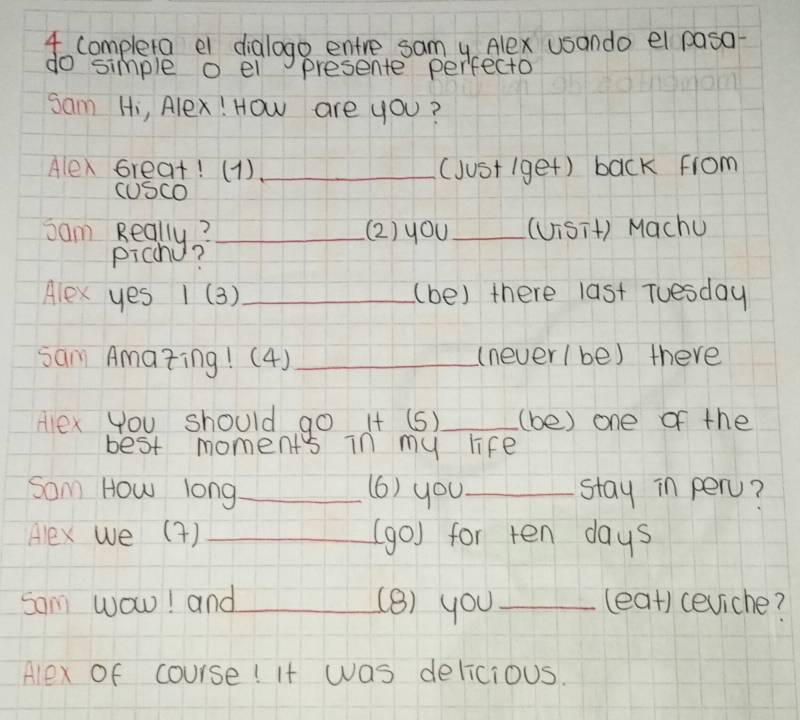 4 completa el dialogo entre sam y Alex usando el pasa-
do simple o el presente perfecto
Sam Hi, Alex! How are you?
Alex Great! (1).__________(Just/get) back from
cusco
Sam Really?__________(2) you____(visit) Machu
picchu?
Alex yes I (3)__________(be) there last Tuesday
Sam Amazing! (4)__________(never/be) there
Alex You should go It (5)____(be) one of the
best moments in my life
Sam How long_______(6) you_______stay in peru?
Alex we (7)__________(go) for ten days
Sam wow! and________(8) you______(eat) ceviche?
Alex Of course! it was delicious.